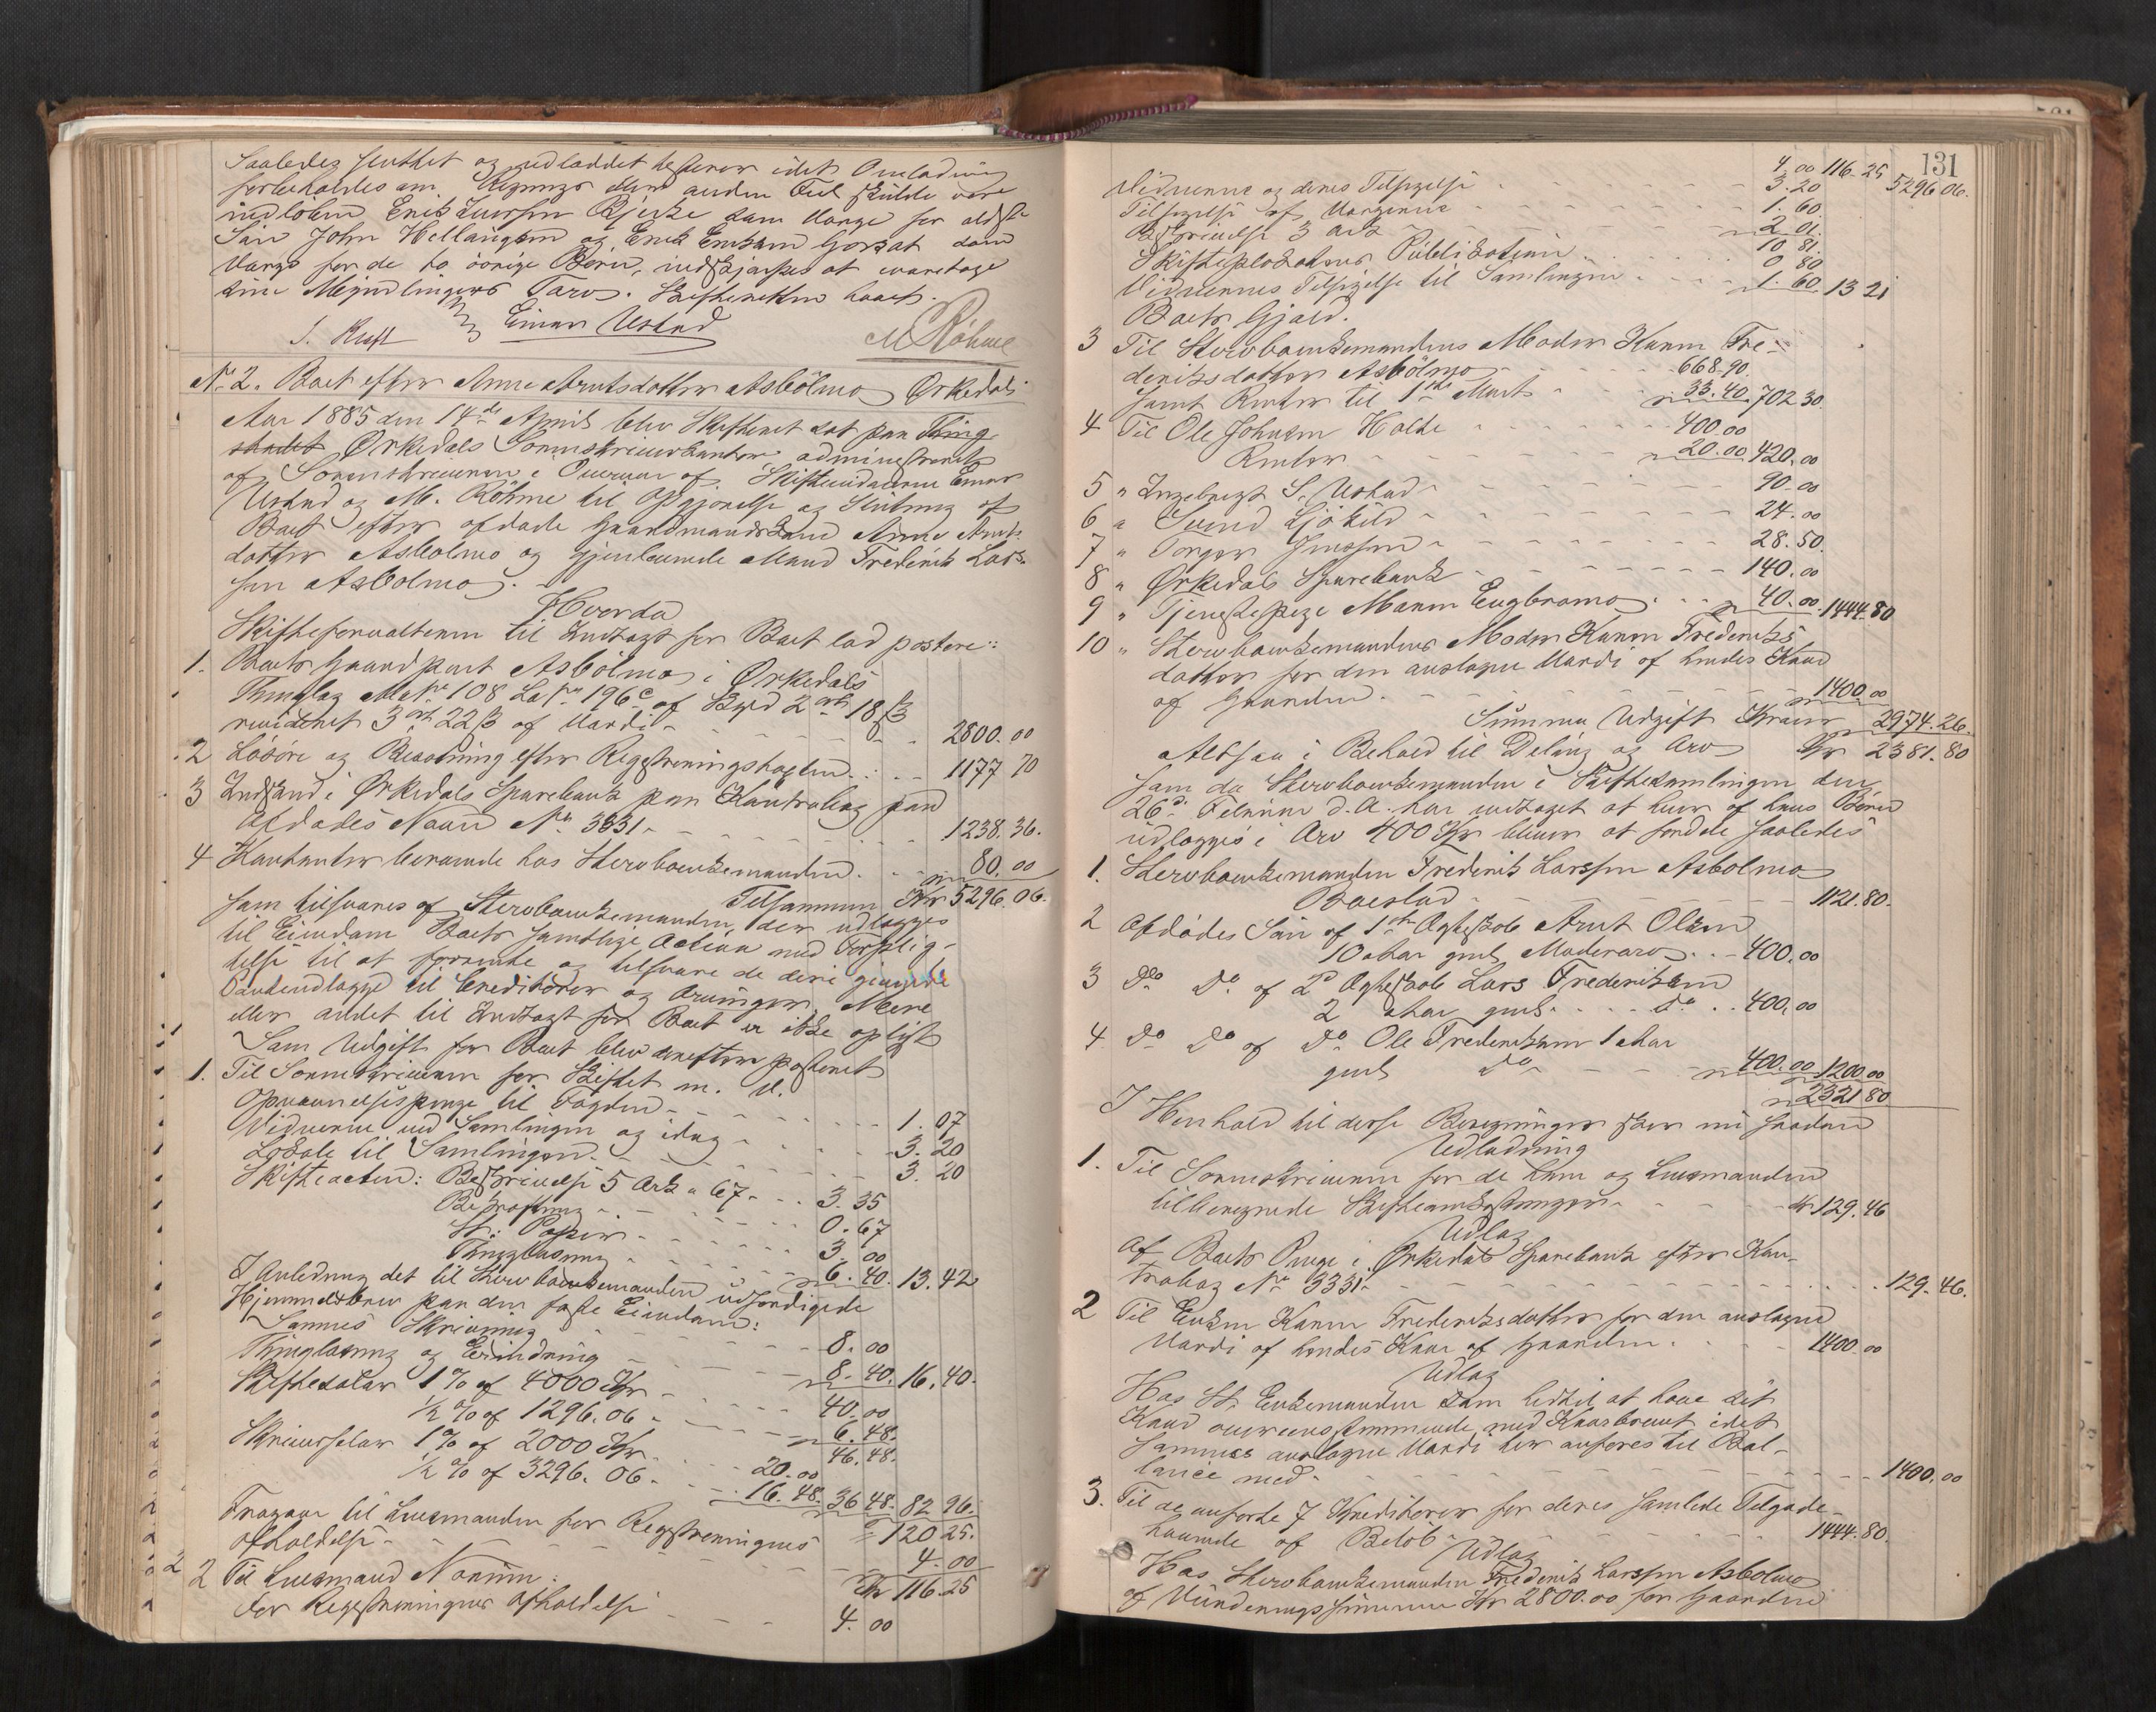 Saaledes sluttet og udloddet testerer idet Omlodning
forbeholdes om Regnings eller anden Feil skulde være
indløben. Erik Larssen Bjerke som Værge for aldste
Søn John Hellangsmo og Erick Ericksen Gorsat som
Værge for de to øvrige Børn, indskjærpes at varetage
sine Myndlingers Tarv. Skifteretten hævet.
S. Kraft Einar Ustad M Röhme
No 2. Boet efter Anne Arntsdatter Asbölmo Ørkedal
Aar 1885 den 14de April blev Skifteret sat paa Thing
stedet Ørkedals Sorenskriverkontor administreret
af Sorenskriveren i Overvær af Skiftevidnerne Einar
Ustad og M. Röhme til Opgjörelse og Slutning af
Boet efter afdøde Gaardmandskone Anne Arnts-
datter Asbolmo og gjenlevende Mand Frederik Lars-
sen Asbolmo.
Hvorda
Skifteforvalteren til Indtægt for Boet lod postere:
1. Boets Gaardpart Asbölmo i Ørkedals
Thinglag Mat No 108 Lø No 196c af Skyld 2 ort 18 ß
revideret 3 ort 22 ß af Værdi 2800.00
2 Løsöre og Besætning efter Registreringsforretn. 1177 70
3 Indskud i Ørkedals Sparebank paa Kontrabog paa
Afdødes Navn No 3331 1238.36.
4 Kontanter beroende hos Stervboenkemanden 80.00
Tilsammen Kr 5296.06.
som tilsvares af Stervboenkemanden, der udlægges
til Eiendom Boets samtlige Activa med Forplig-
telse til at forrente og tilsvare de deri givende
Panteudlægge til Creditorer og Arvinger. Mere
eller andet til Indtægt for Boet er ikke oplyst
Som Udgift for Boet blev derefter posteret
1. Til Sorenskriveren for Skiftet m. V.
Opnævnelsespenge til Fogden 1.07
Vidnerne ved Samlingen og idag 3.20
Lokale til Samlingen 3.20
Skifteacten: Beskrivelse 5 Ark a 67 3.35
Bekræftning 0.67
St: Papir 3.00
Thinglæsning 6.40. 13.42
I Anledning det til Stervboenkemanden udfærdigede
Hjemmelsbrev paa den faste Eiendom:
Sammes Skrivning 8.00
Thinglæsning og Erindring 8.40. 16.40.
Skiftesalær 1% af 4000 Kr 40.00
½ % af 1296.06 6.48.
46.48.
Skriversalær 1% af 2000 Kr 20.00
½ % af 3296.06 16.48. 36 48. 82 96.
120 25.
Fragaar til Lensmanden for Registreringens
Afholdelse 4.00
Kr 116.25
2 Til Lensmand Norum:
for Registreringens Afholdelse 4.00
131
4.00 116.25 5296 06.
Vidnerne og deres Tilsigelse 3.20
Tilsigelse af Værgerne 1.60.
Beskrivelse 3 Ark 2 01.
10 81.
Skifteplakatens Publikation 0 80
Vidnernes Tilsigelse til Samlingen 1.60. 13 21
Boets Gjæld.
3 Til Stervboenkemandens Moder Karen Fre-
deriksdatter Asbölmo 668.90.
samt Renter til 1ste Marts 33.40. 702 30.
4 Til Ole Johnsen Holte 400.00
Renter 20.00. 420.00
5 " Ingebrigt S. Ustad 90.00
6 " Svend Sjökild 24.00
7 " Torger Jonssen 28.50.
8 " Ørkedals Sparebank 140.00
9 " Tjenestepige Maren Engbramo 40.00. 1444.80
10 " Stervboenkemandens Moder Karen Frederiks
datter for den anslagne Værdi af hendes Kaar
af Gaarden 1400.00
Summa Udgift Kroner 2974.26.
Altsaa i Behold til Deling og Arv Kr 2381.80
Som da Stervboenkemanden i Skiftesamlingen den
26de Februar d. A. har vedtaget at hver af hans Børn
udlægges i Arv 400 Kr bliver at fordele saaledes
1. Stervboenkemanden Frederik Larssen Asbolmo
Boeslod 1121.80.
2 Afdødes Søn af 1ste Ægteskab Arnt Olsen
10 aar gml. Moderarv 400.00
3 Do Do af 2d Ægteskab Lars Frederiksen
2 Aar gml. do 400.00
4 Do Do af Do Ole Frederiksen 1 Aar
gml Do 400.00 1200.00
2321 80
I Henhold til disse Beregninger skeer nu saadan
Udlodning
1. Til Sorenskriveren for de ham og Lensmanden
tilberegnede Skifteomkostninger Kr 129.46
Udlæg
Af Boets Penge i Ørkedals Sparebank efter Kon-
trabog No 3331 129.46.
2 Til Enken Karen Frederiksdatter for den anslagne
Værdi af hendes Kaar af Gaarden 1400.00
Udlæg
Hos St. Enkemanden som hidtil at have sit
Kaar overensstemmende med Kaarbrevet idet
sammes anslagne Værdi her anføres til Bal-
lance med 1400.00
3. Til de anførte 7 Kreditorer for deres samlede Tilgode-
havende af Beløb 1444.80.
Udlæg
Hos Stervboenkemanden Frederik Larssen Asbolmo
af Vurderingssummen Kr 2800.00 for Gaarden